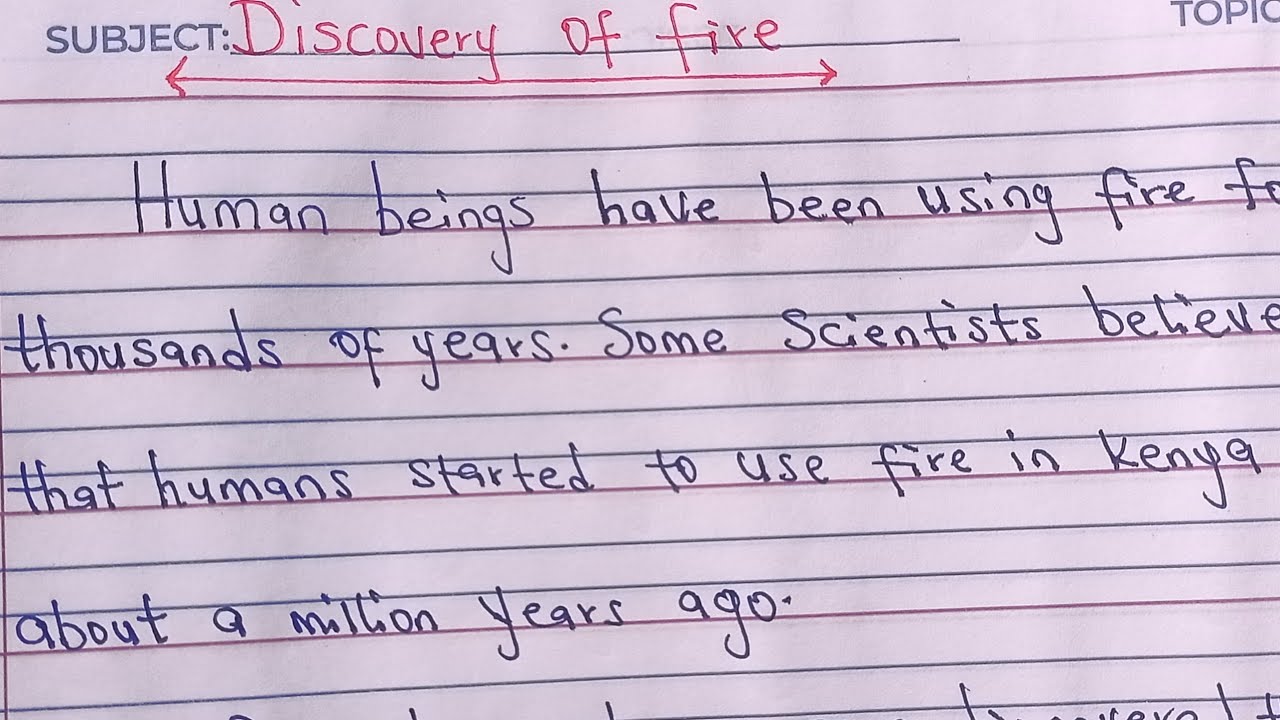 SUBJECT: Discovery of fire TOPIC
Human beings have been using fire fo
thousands of years. Some Scientists believe
that humans started to use fire in Kenya
about a million years ago.